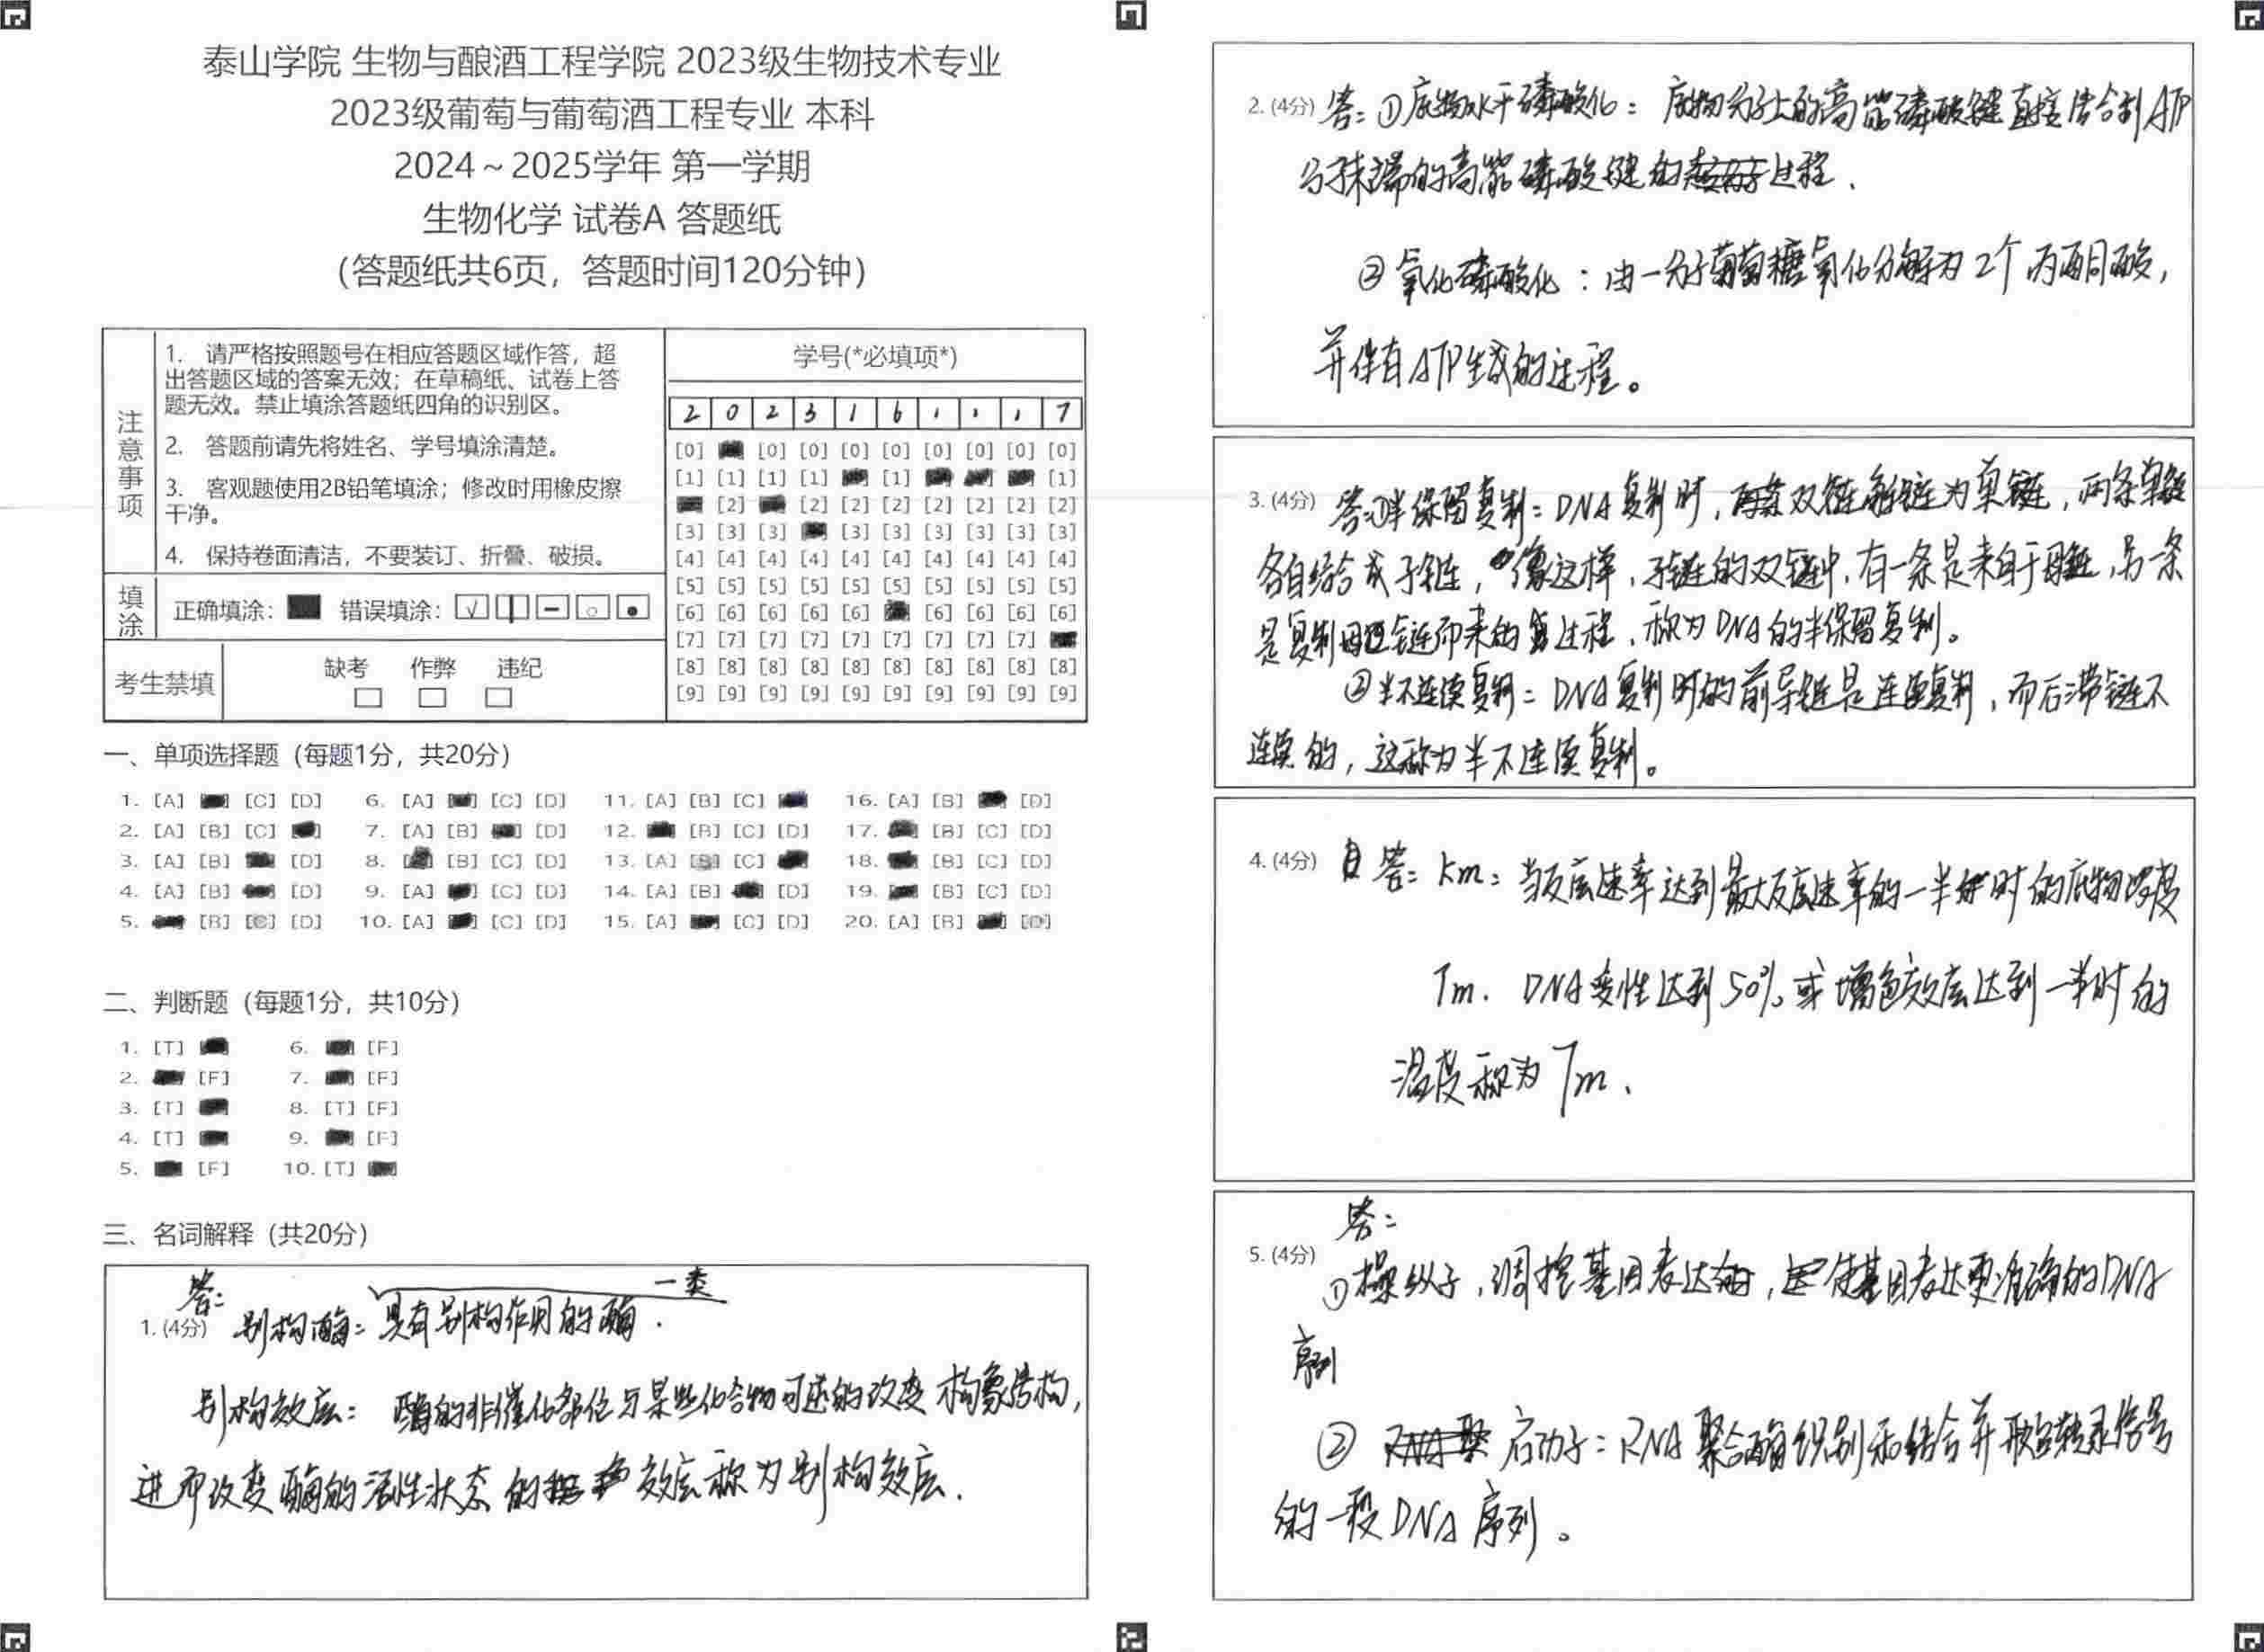 泰山学院 生物与酿酒工程学院 2023级生物技术专业
2023级葡萄与葡萄酒工程专业 本科
2024～2025学年 第一学期
生物化学 试卷A 答题纸
（答题纸共6页，答题时间120分钟）
注意事项
1. 请严格按照题号在相应答题区域作答，超
出答题区域的答案无效；在草稿纸、试卷上答
题无效。禁止填涂答题纸四角的识别区。
2. 答题前请先将姓名、学号填涂清楚。
3. 客观题使用2B铅笔填涂；修改时用橡皮擦
干净。
4. 保持卷面清洁，不要装订、折叠、破损。
填涂
正确填涂： 错误填涂：
考生禁填
缺考 作弊 违纪
学号(*必填项*)
2 0 2 3 1 6 1 1 1 7
[0] [0] [0] [0] [0] [0] [0] [0] [0]
[1] [1] [1] [1] [1] [1]
[2] [2] [2] [2] [2] [2] [2] [2]
[3] [3] [3] [3] [3] [3] [3] [3] [3]
[4] [4] [4] [4] [4] [4] [4] [4] [4] [4]
[5] [5] [5] [5] [5] [5] [5] [5] [5] [5]
[6] [6] [6] [6] [6] [6] [6] [6] [6]
[7] [7] [7] [7] [7] [7] [7] [7] [7]
[8] [8] [8] [8] [8] [8] [8] [8] [8] [8]
[9] [9] [9] [9] [9] [9] [9] [9] [9] [9]
一、单项选择题（每题1分，共20分）
1. [A] [C] [D] 6. [A] [C] [D] 11. [A] [B] [C] 16. [A] [B] [D]
2. [A] [B] [C] 7. [A] [B] [D] 12. [B] [C] [D] 17. [B] [C] [D]
3. [A] [B] [D] 8. [B] [C] [D] 13. [A] [B] [C] 18. [B] [C] [D]
4. [A] [B] [D] 9. [A] [C] [D] 14. [A] [B] [D] 19. [B] [C] [D]
5. [B] [C] [D] 10. [A] [C] [D] 15. [A] [C] [D] 20. [A] [B] [D]
二、判断题（每题1分，共10分）
1. [T] 6. [F]
2. [F] 7. [F]
3. [T] 8. [T] [F]
4. [T] 9. [F]
5. [F] 10. [T]
三、名词解释（共20分）
答： 一类
1. (4分) 别构酶：具有别构作用的酶．
别构效应：酶的非催化部位与某些化合物可逆的改变构象结构，
进而改变酶的活性状态的效应称为别构效应．
2. (4分) 答：①底物水平磷酸化：底物分子上的高能磷酸键直接结合到ATP
分子末端的高能磷酸键的过程．
②氧化磷酸化：由一分子葡萄糖氧化分解为2个丙酮酸，
并伴有ATP生成的过程。
3. (4分) 答：①半保留复制：DNA复制时，双链解链为单链，两条单链
各自结合成子链，像这样，子链的双链中，有一条是来自于母链，另一条
是复制母链而来的过程，称为DNA的半保留复制。
②半不连续复制：DNA复制时的前导链是连续复制，而后滞链不
连续的，这称为半不连续复制。
4. (4分) 答：Km：当反应速率达到最大反应速率的一半时的底物浓度
Tm．DNA变性达到50%或增色效应达到一半时的
温度称为Tm．
答：
5. (4分) ①操纵子，调控基因表达，使基因表达更准确的DNA
序列
②启动子：RNA聚合酶识别和结合并起始转录信号
的一段DNA序列。